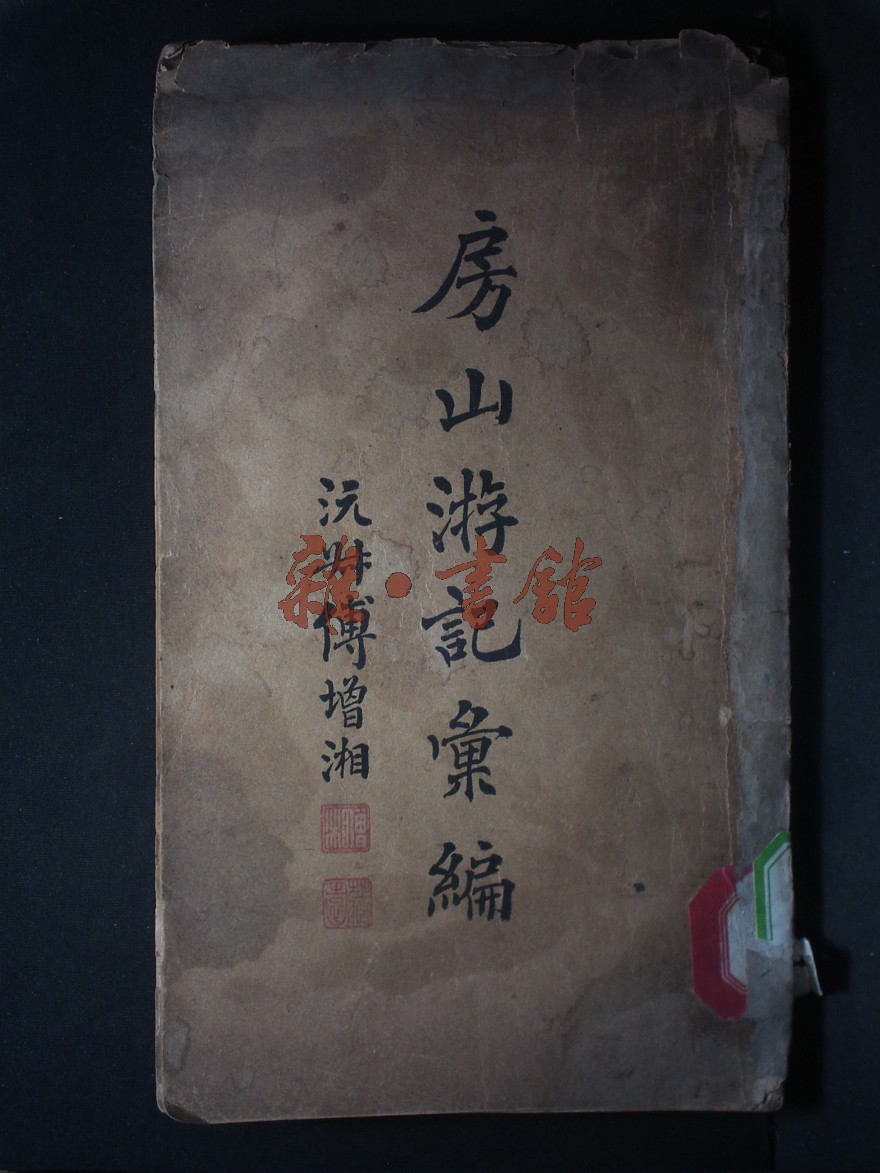 房山游記彙編
沅叔傅增湘
雜·書館